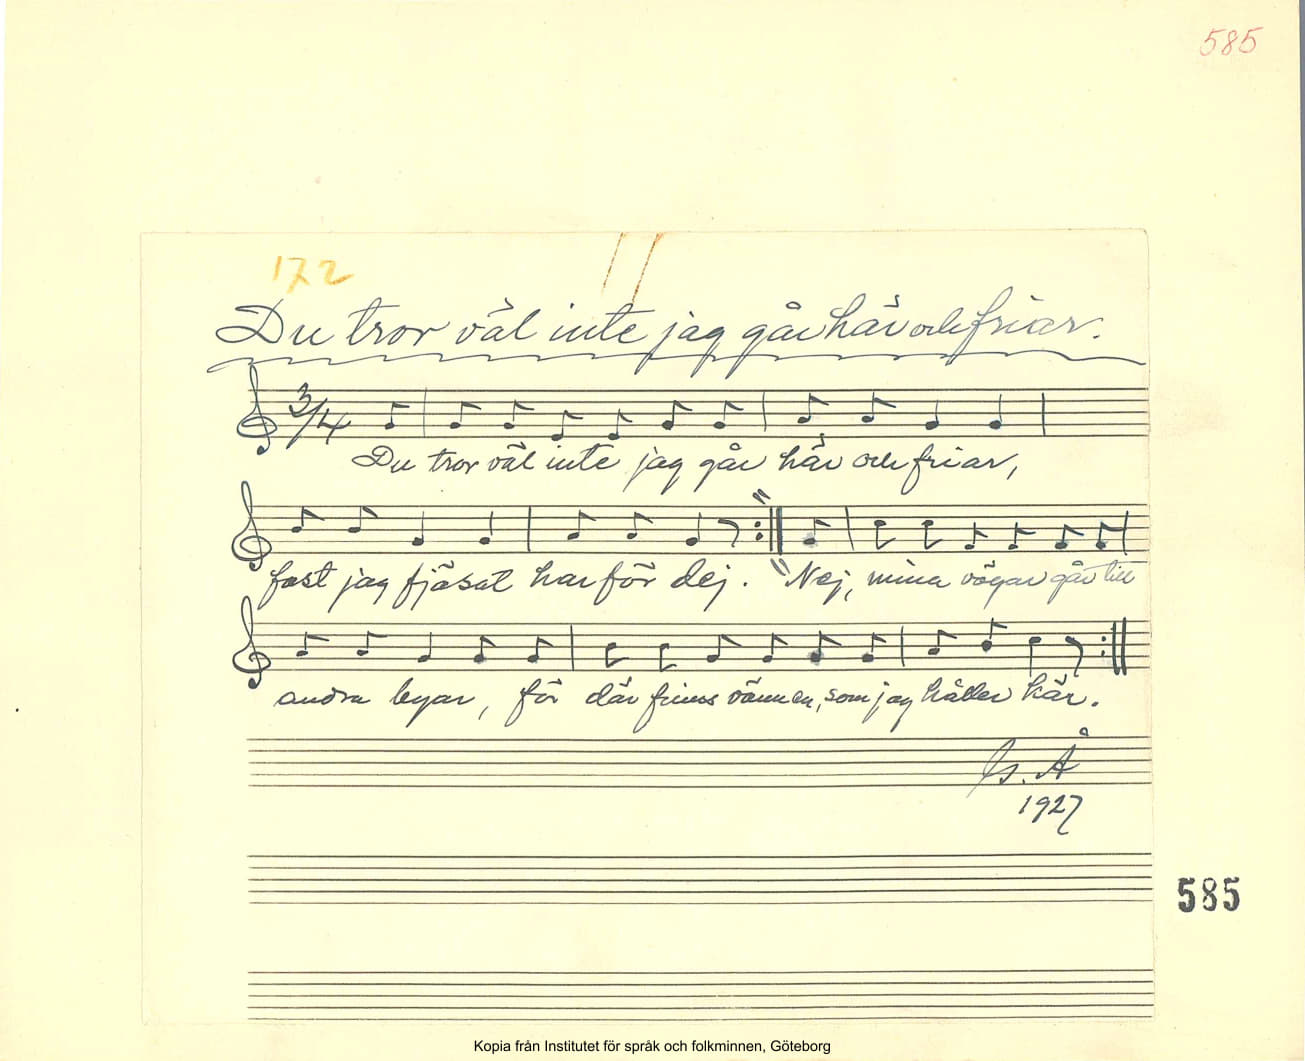 585
172
Du tror väl inte jag går här och friar.
3/4
Du tror väl inte jag går här och friar,
fast jag fjäsat har för dej. Nej, mina vägar går till
andra byar, för där finns vännen, som jag håller kär.
Å
1927
585
Kopia från Institutet för språk och folkminnen, Göteborg